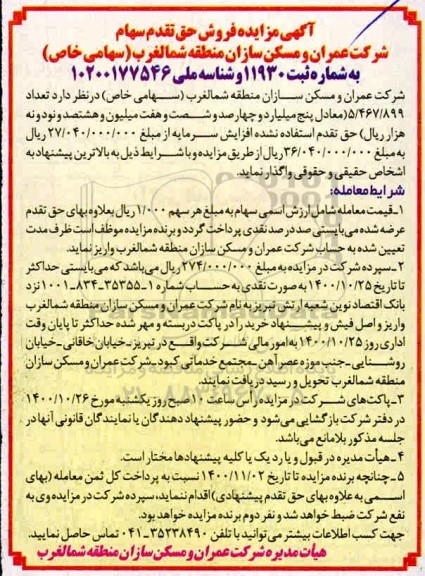 آگهی مزایده فروش حق تقدم سهام
شرکت عمران و مسکن سازان منطقه شمالغرب (سهامی خاص)
به شماره ثبت ۱۱۹۳۰ و شناسه ملی ۱۰۲۰۰۱۷۷۵۴۶
شرکت عمران و مسکن سازان منطقه شمالغرب (سهامی خاص) در نظر دارد تعداد
۵/۴۶۷/۸۹۹ (معادل پنج میلیارد و چهارصد و شصت و هفت میلیون و هشتصد و نود و نه
هزار ریال) حق تقدم استفاده نشده افزایش سرمایه از مبلغ ۲۷/۰۴۰/۰۰۰/۰۰۰ ریال
به مبلغ ۳۶/۰۴۰/۰۰۰/۰۰۰ ریال از طریق مزایده و با شرایط ذیل به بالاترین پیشنهاد به
اشخاص حقیقی و حقوقی واگذار نماید.
شرایط معامله:
۱-قیمت معامله شامل ارزش اسمی سهام به مبلغ هر سهم ۱/۰۰۰ ریال بعلاوه بهای حق تقدم
عرضه شده می بایستی صد در صد نقدی پرداخت گردد و برنده مزایده موظف است ظرف مدت
تعیین شده به حساب شرکت عمران و مسکن سازان منطقه شمالغرب واریز نماید.
۲-سپرده شرکت در مزایده به مبلغ ۲۷۴/۰۰۰/۰۰۰ ریال می باشد که می بایستی حداکثر
تا تاریخ ۱۴۰۰/۱۰/۲۵ به صورت نقدی به حساب شماره ۱-۳۵۳۵۵-۸۳۴-۱۰۰۱ نزد
بانک اقتصاد نوین شعبه ارتش تبریز به نام شرکت عمران و مسکن سازان منطقه شمالغرب
واریز و اصل فیش و پیشنهاد خرید را در پاکت دربسته و مهر شده حداکثر تا پایان وقت
اداری روز ۱۴۰۰/۱۰/۲۵ به امور مالی شرکت واقع در تبریز-خیابان خاقانی-خیابان
روشنایی-جنب موزه عصر آهن-مجتمع خدماتی کبود-شرکت عمران و مسکن سازان
منطقه شمالغرب تحویل و رسید دریافت نمایند.
۳-پاکت های شرکت در مزایده رأس ساعت ۱۰ صبح روز یکشنبه مورخ ۱۴۰۰/۱۰/۲۶
در دفتر شرکت بازگشایی می شود و حضور پیشنهاد دهندگان یا نمایندگان قانونی آنها در
جلسه مذکور بلامانع می باشد.
۴-هیأت مدیره در قبول و یا رد یک یا کلیه پیشنهادها مختار است.
۵-چنانچه برنده مزایده تا تاریخ ۱۴۰۰/۱۱/۰۲ نسبت به پرداخت کل ثمن معامله (بهای
اسمی به علاوه بهای حق تقدم پیشنهادی) اقدام ننماید، سپرده شرکت در مزایده وی به
نفع شرکت ضبط خواهد شد و نفر دوم برنده مزایده خواهد بود.
جهت کسب اطلاعات بیشتر می توانید با تلفن ۳۵۲۳۸۴۹۰-۰۴۱ تماس حاصل نمایید.
هیأت مدیره شرکت عمران و مسکن سازان منطقه شمالغرب